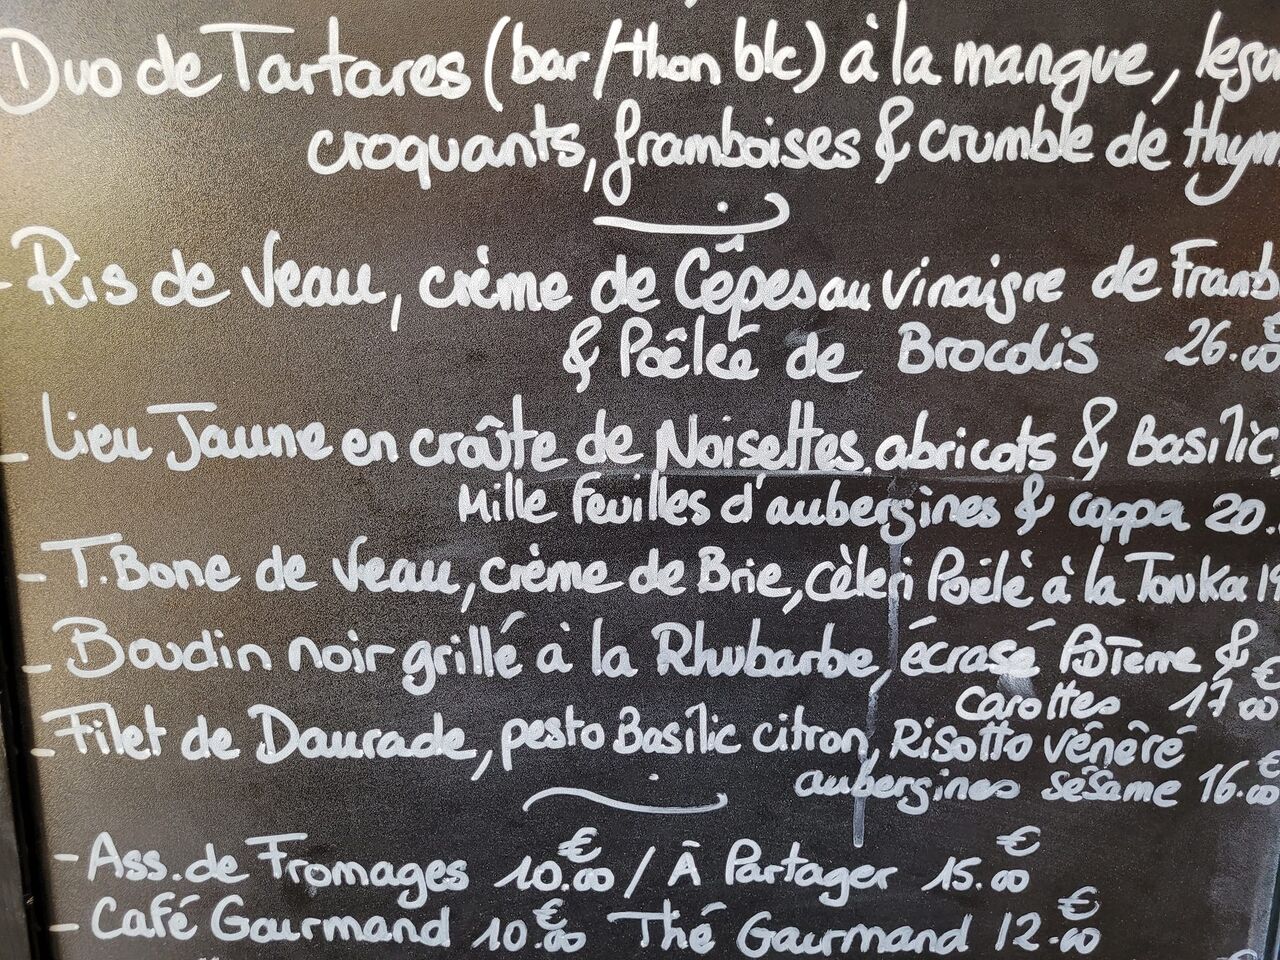 Duo de Tartares (bar/thon blc) à la mangue,
croquants, framboises & crumble de thym
- Ris de Veau, crème de Cêpes au vinaigre de Framb
& Poêlée de Brocolis 26.00€
- Lieu Jaune en croûte de Noisettes, abricots & Basilic,
Mille Feuilles d'aubergines & coppa 20.
- T.Bone de Veau, crème de Brie, cèleri Poêlé à la Tonka 19
- Boudin noir grillé à la Rhubarbe, écrasé PDTerre &
carottes 17.00€
- Filet de Daurade, pesto Basilic citron, Risotto vénéré
aubergines sésame 16.00€
- Ass. de Fromages 10.00€ / À Partager 15.00€
- Café Gourmand 10.00€ Thé Gourmand 12.00€